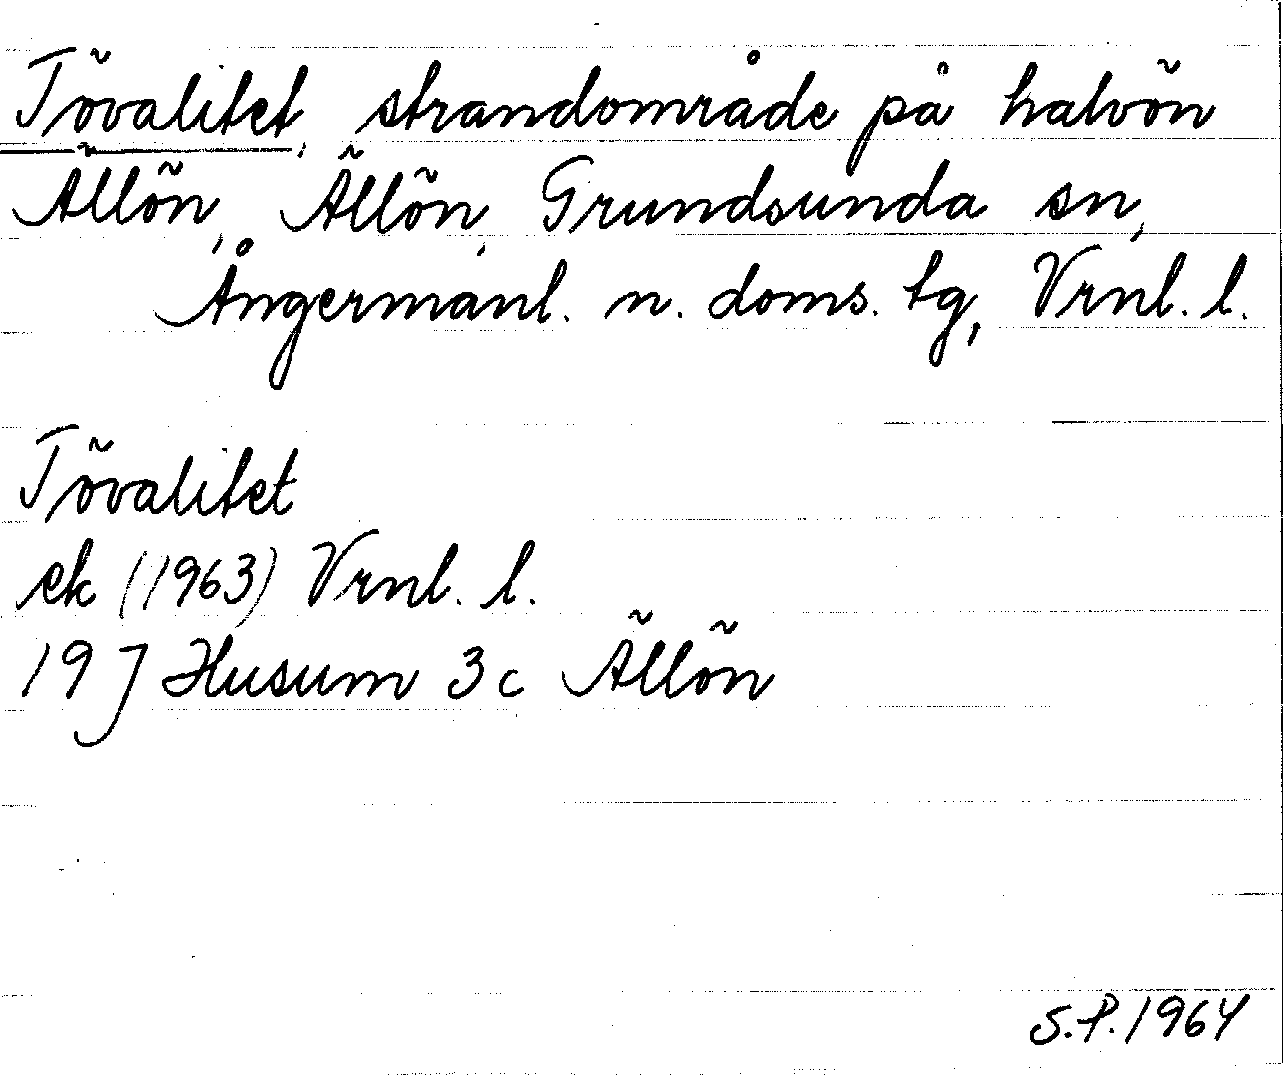 Tövalitet, strandområde på halvön
Ällön, Ällön, Grundsunda sn,
Ångermanl. n. doms. tg, Vrnl. l.
Tövalitet
ek (1963) Vrnl. l.
19 J Husum 3 c Ällön
S.P. 1964